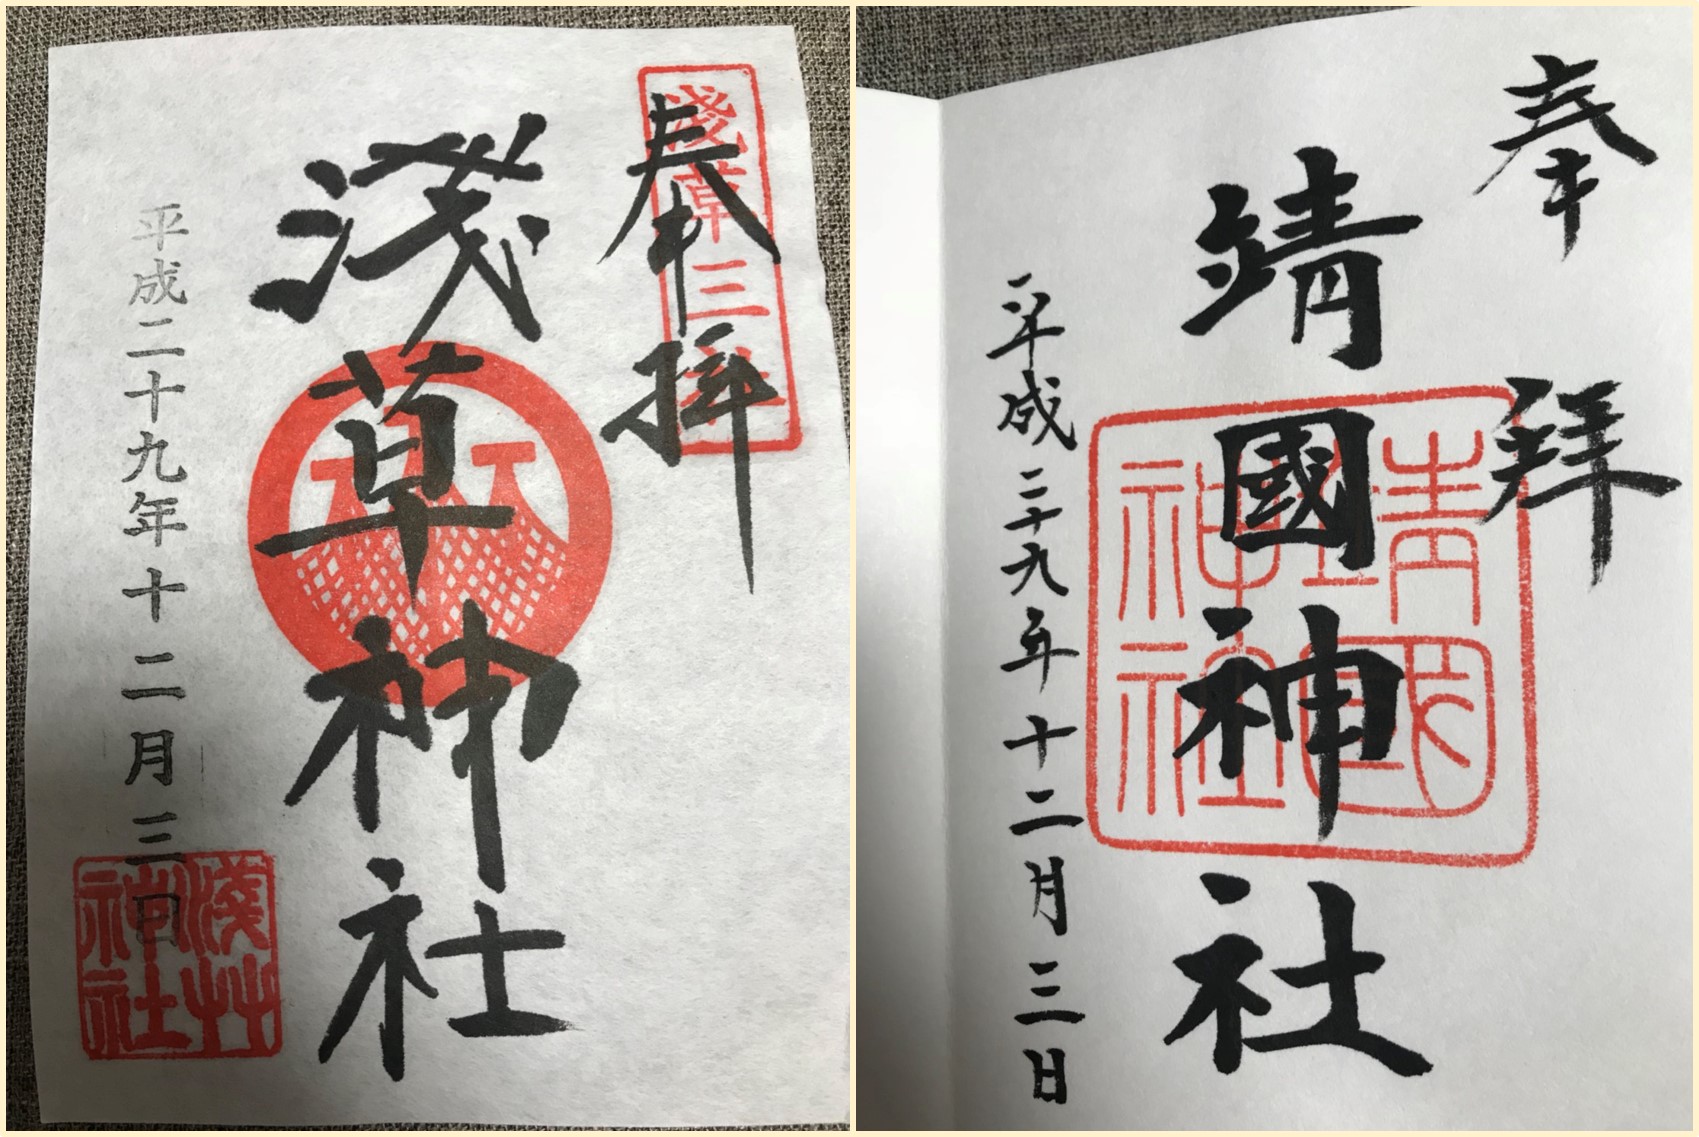 奉拝
淺草三社
淺草神社
平成二十九年十二月三日
淺艸神社
奉拜
靖國神社
靖國神社
平成二十九年十二月三日